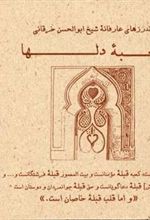 ندرزهای عارفانهٔ شیخ ابوالحسن خرقانی
بهٔ دلها
کعبه قبلهٔ مؤمنانست و بیت المعمور قبلهٔ فرشتگانست و... و
قبلهٔ دعاگویانست و حق قبلهٔ جوانمردان و دوستان است
«و اما قلب قبلهٔ خاصان است.»